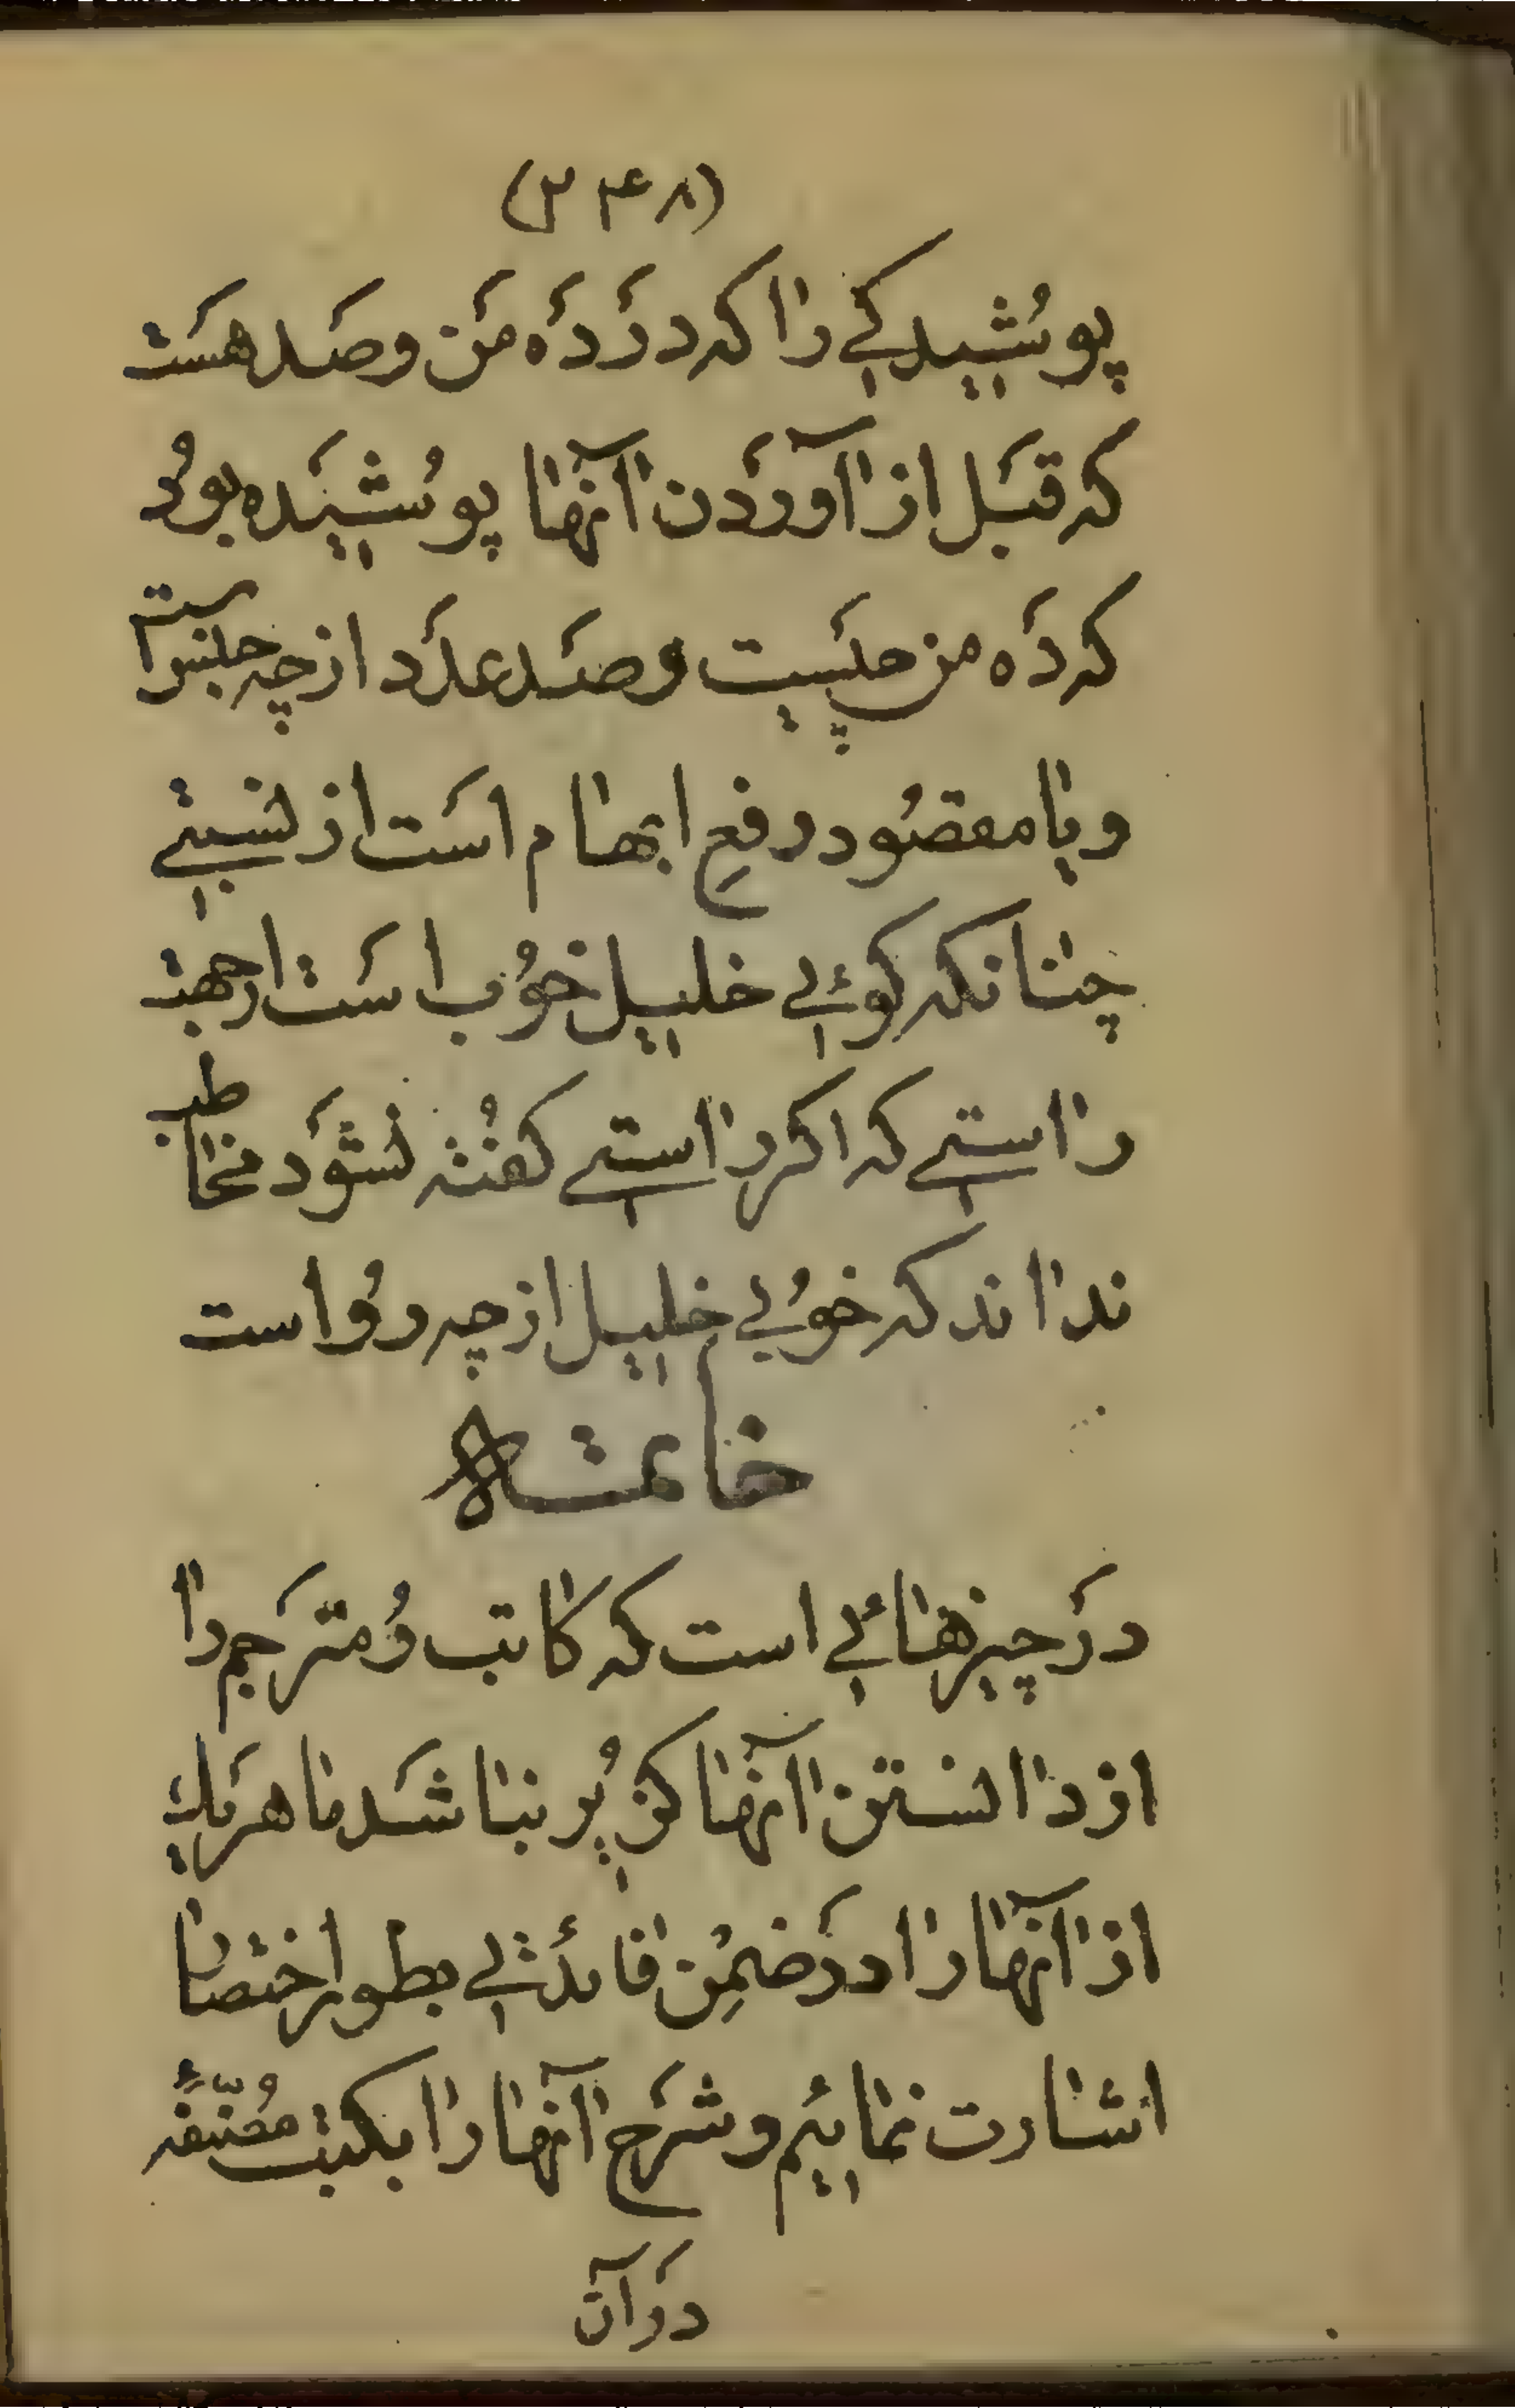 (۲۴۸)
پوُشیدکے را که دَر دَه مَن وصَد هسَت
که قبَل از آوردَن آنها پوُشیَده بوُد
که دَه من چیَست و صَد عدَد از چه جنس است
و یا مقصُود رفعِ ابهام است از نسبتے
چنانکه کوئے خلیل خوُب است از جهت
راستے که اکر راستے کفُته نشوَد مخاطب
نداند که خوُبے خلیل از چه روُ است
خاتمه
درَ چیزهائے است که کاتب وُ مترَجم را
از دانستن آنها کزُیر نباشَد ما هرَیك
از آنها را درَ ضمِن فائدَتے بطور اختصار
اشارت نمائیم و شرَح آنها را بکتب مُصَنّفَه
درَ آن